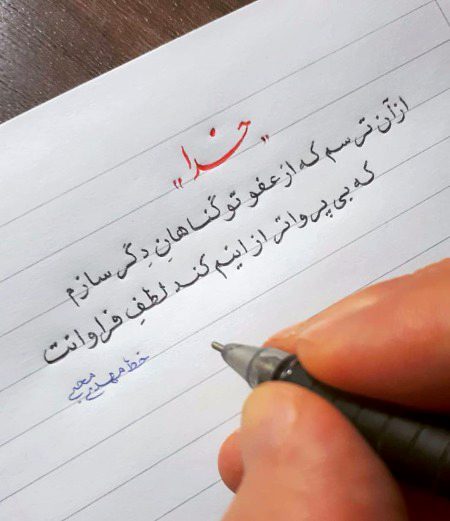 "خدا"
از آن ترسم که از عفو تو گناهانِ دِگر سازم
که بی پرواتر از اینم کند لطفِ فراوانت
خط مهدی محبی